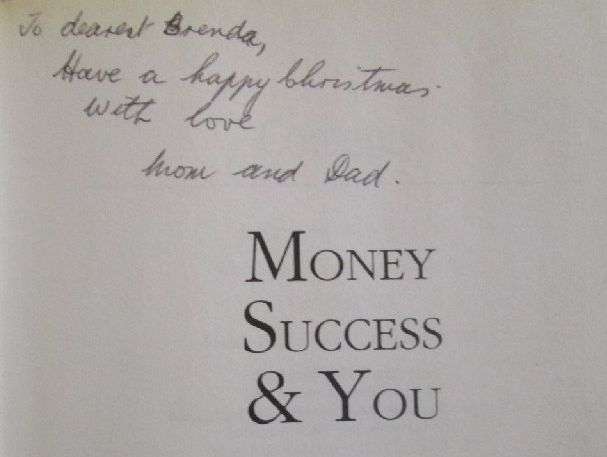 To dearest Brenda,
Have a happy Christmas.
With love
Mom and Dad.
MONEY
SUCCESS
& YOU